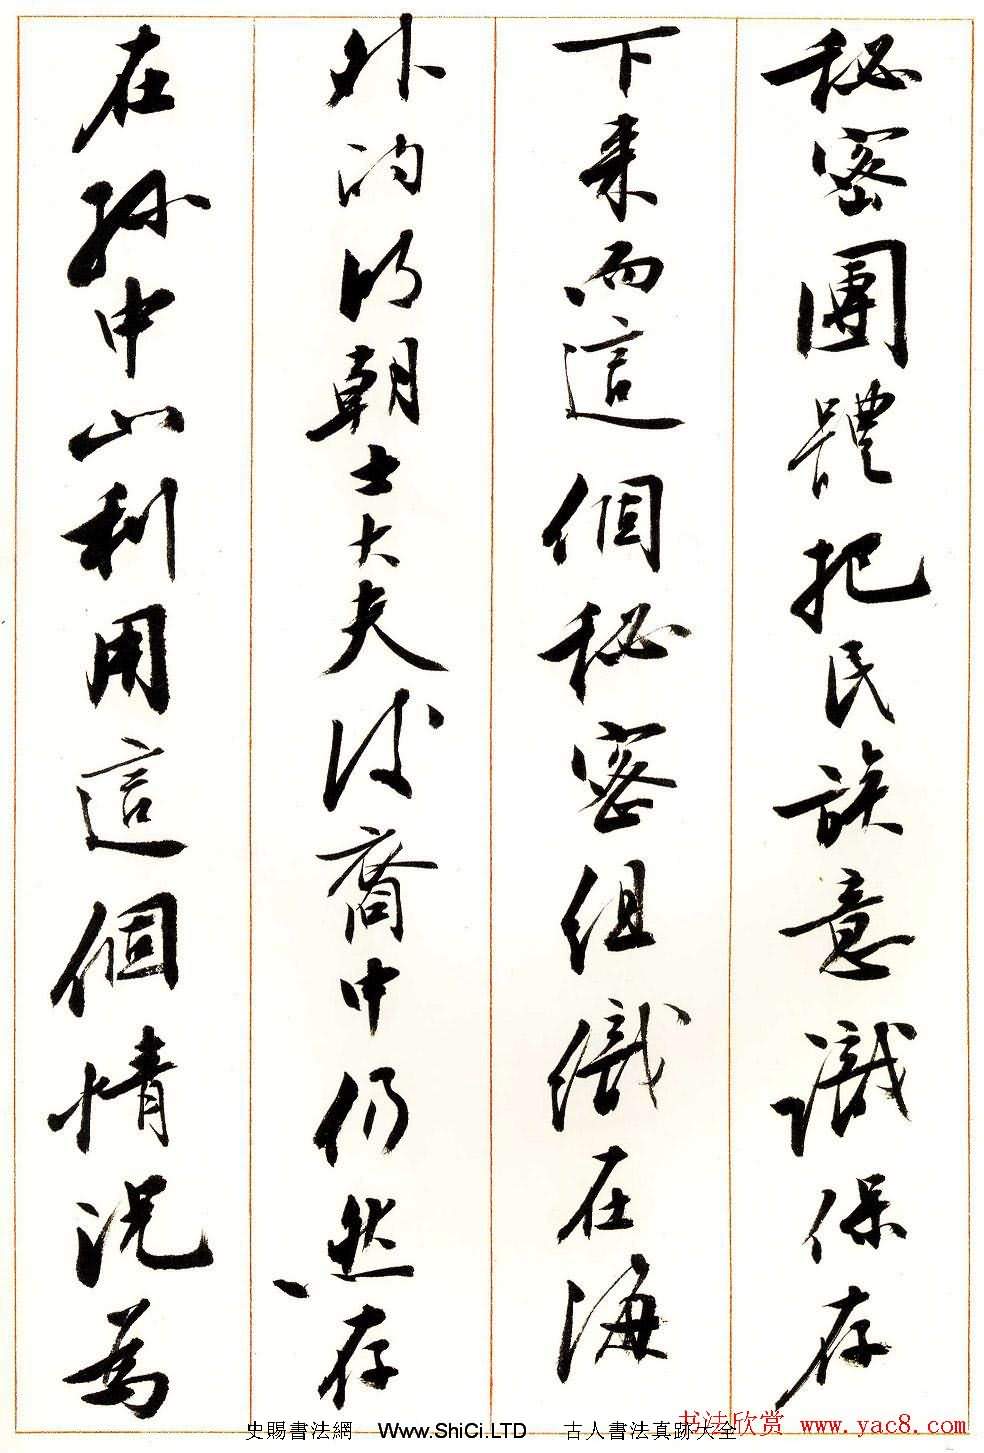 秘密團體把民族意識保存
下来而、這個秘密組織在海
外的明朝士大夫後裔中仍然存、
在孫中山利用這個情況為
書法欣赏 www.yac8.com
史賜書法網 Www.ShiCi.LTD 古人書法真跡大全